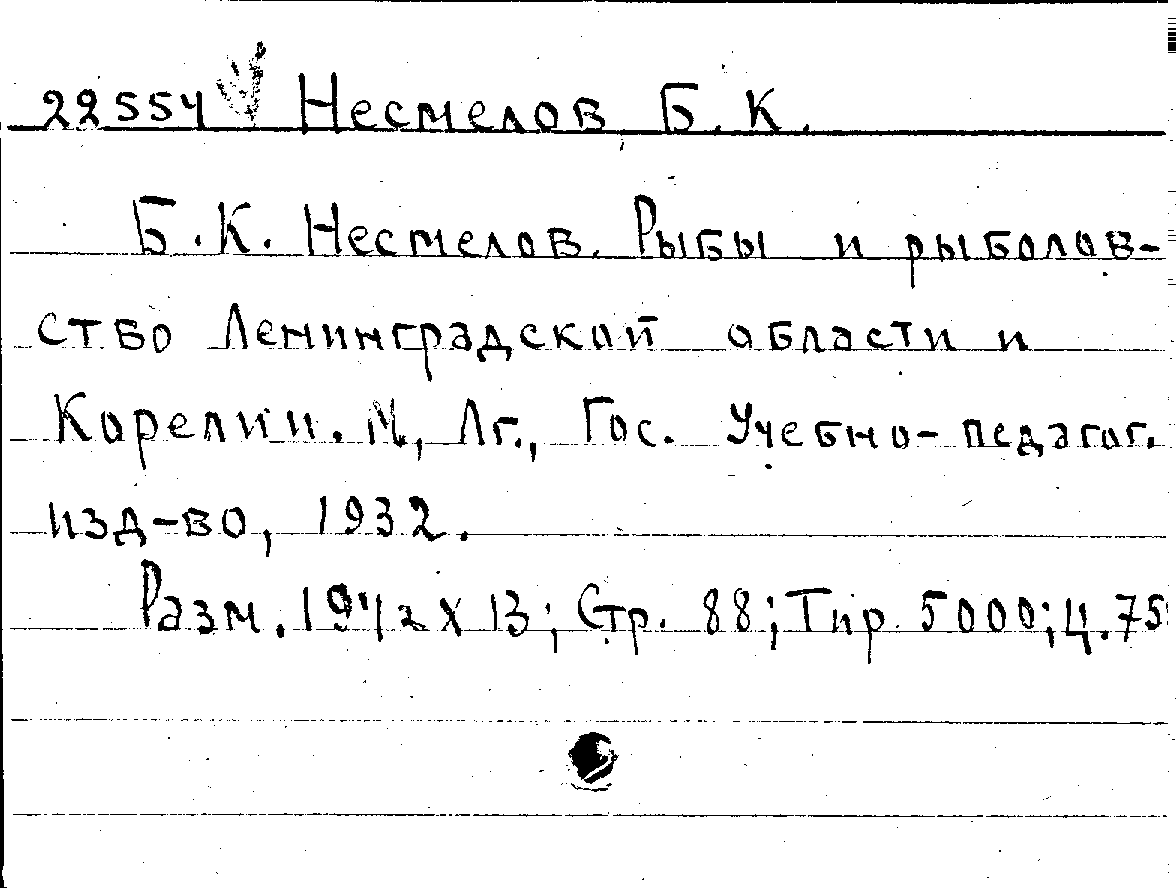 22554 Несмелов Б. К.
Б. К. Несмелов. Рыбы и рыболов-
ство Ленинградской области и
Карелии. М, Лг., Гос. Учебно-педагог.
изд-во, 1932.
Разм. 19½ х 13; Стр. 88; Тир 5000; Ц. 75